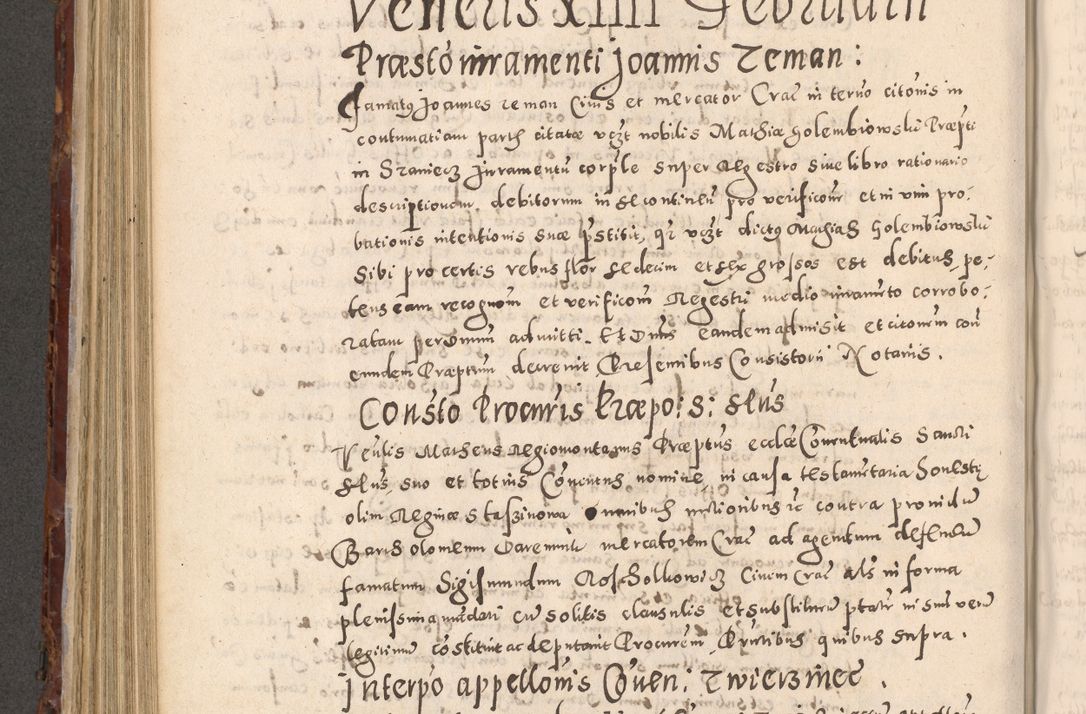 Veneris XIIII Februarii
Præstō iuramenti Joannis Zeman :
Famatꝰ Joannes Zeman Civis et mercator Crac̄ in termō citōnis in
contumatiam partis citatæ vczt nobilis Mathiæ Golembiowski Præpti
in Szaniecz Juramentū corpl̄e super Regestro sive libro rationario
descriptionum, debitorum in se continēn̄ pro verificōne et in vim pro-
bationis intentionis suæ p̄stitit, q̄ vczt dictꝰ Mathias Golembiowski
sibi pro certis rebus flor̄ sedecim et sex grossos est debitus, pe-
tens eam recognōm et verificōm Regestri medio iuramēto corrobo-
ratam per Dnūm admitti. Et Dnūs eandem admisit et citonem con̄
eundem Præptum decrevit Præsentibus Consistorii Notariis.
Constō Procuris Præpo: S: slūs
Veñlis Matheus Regiomontanus Præptus ecclæ Conventualis Sancti
slūs, suo et totius Conventus nomine, in causa testamentaria honestę
olim Reginæ Staszinowa omnibus actionibus ꝛc contra providum
Bartholomeum mercatorem Crac̄ ad agendum defendēn̄
famatum Sigismundum Civem Crac̄ als in forma
plenissima mandati cū solitis clausulis et substituēn̄ ptate in suū verū
legitimū cōstituit ac deputavit Procurem̄, Pñtibus quibus supra.
Interpo appellonīs Coñven: Zwierzinec.